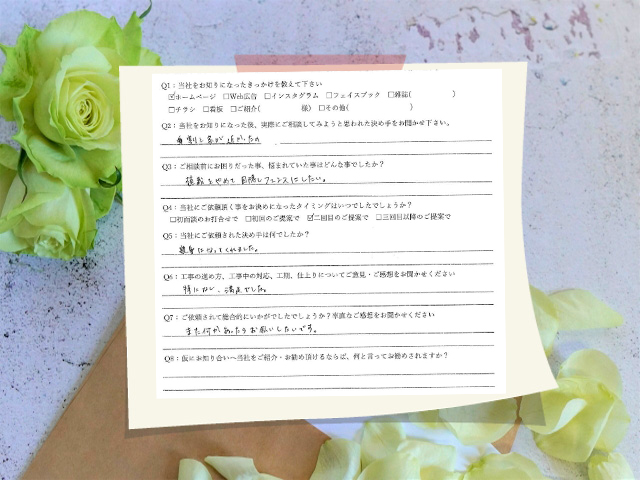 Q1：当社をお知りになったきっかけを教えて下さい
☑ホームページ　□Web広告　□インスタグラム　□フェイスブック　□雑誌(　　　　　)
□チラシ　□看板　□ご紹介(　　　　　様)　□その他(　　　　　　　)
Q2：当社をお知りになった後、実際にご相談してみようと思われた決め手をお聞かせ下さい。
割と家が近かった
Q3：ご相談前にお困りだった事、悩まれていた事はどんな事でしたか？
植栽をやめて目隠しフェンスにしたい。
Q4：当社にご依頼頂く事をお決めになったタイミングはいつでしたでしょうか？
□初面談のお打合せで　□初回のご提案で　☑二回目のご提案で　□三回目以降のご提案で
Q5：当社にご依頼された決め手は何でしたか？
親身になってくれました。
Q6：工事の進め方、工事中の対応、工期、仕上りについてご意見・ご感想をお聞かせください
特になし、満足でした。
Q7：ご依頼されて総合的にいかがでしたでしょうか？率直なご感想をお聞かせください
また何かあったらお願いしたいです。
Q8：仮にお知り合いへ当社をご紹介・お勧め頂けるならば、何と言ってお勧めされますか？